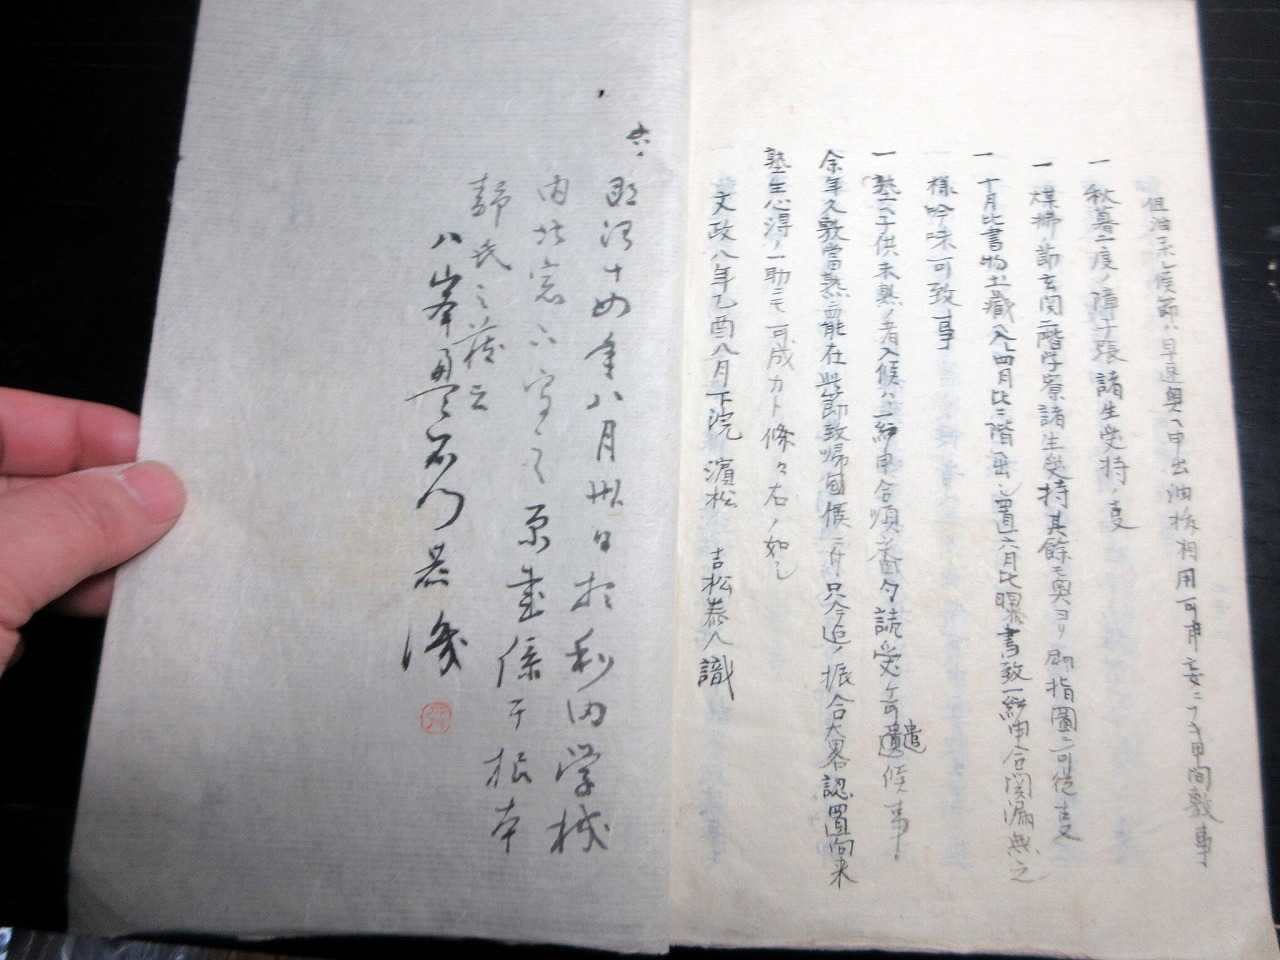 但油系候節ハ早速奥ヘ申出油拭相用可申妄ニフキ申間敷事
一 秋暮二度ノ障子張諸生受持ノ事
一 煤掃ノ節玄関二階学寮諸生受持其餘モ奥ヨリノ指圖ニ可従事
一 十月比書物土藏ヘ入レ四月比二階ヘ出シ置六月比曝書致一統申合闕漏無之
様吟味可致事
一 塾ヘ子供未熟ノ者入候ハヽ一統申合順番句読受ケ可遣候事
余年久敷當熟ニ能在此節致帰国候ニ付只今迄ノ振合大畧認置向来
塾生心得ノ一助ニモ可成カト條々右ノ如シ
文政八年乙酉八月下院 濱松 吉松泰人識
明治十四年八月卅日於利内学校
内北窓下写之原書係于根本
靜氏之蔵云
八峯